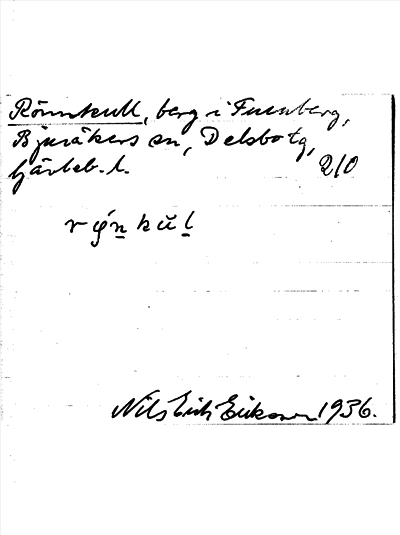 Rönnkull, berg i Furuberg,
Bjuråkers sn, Delsbo tg,
Gävleb. l. 210
Nils Erik Eriksson 1936.